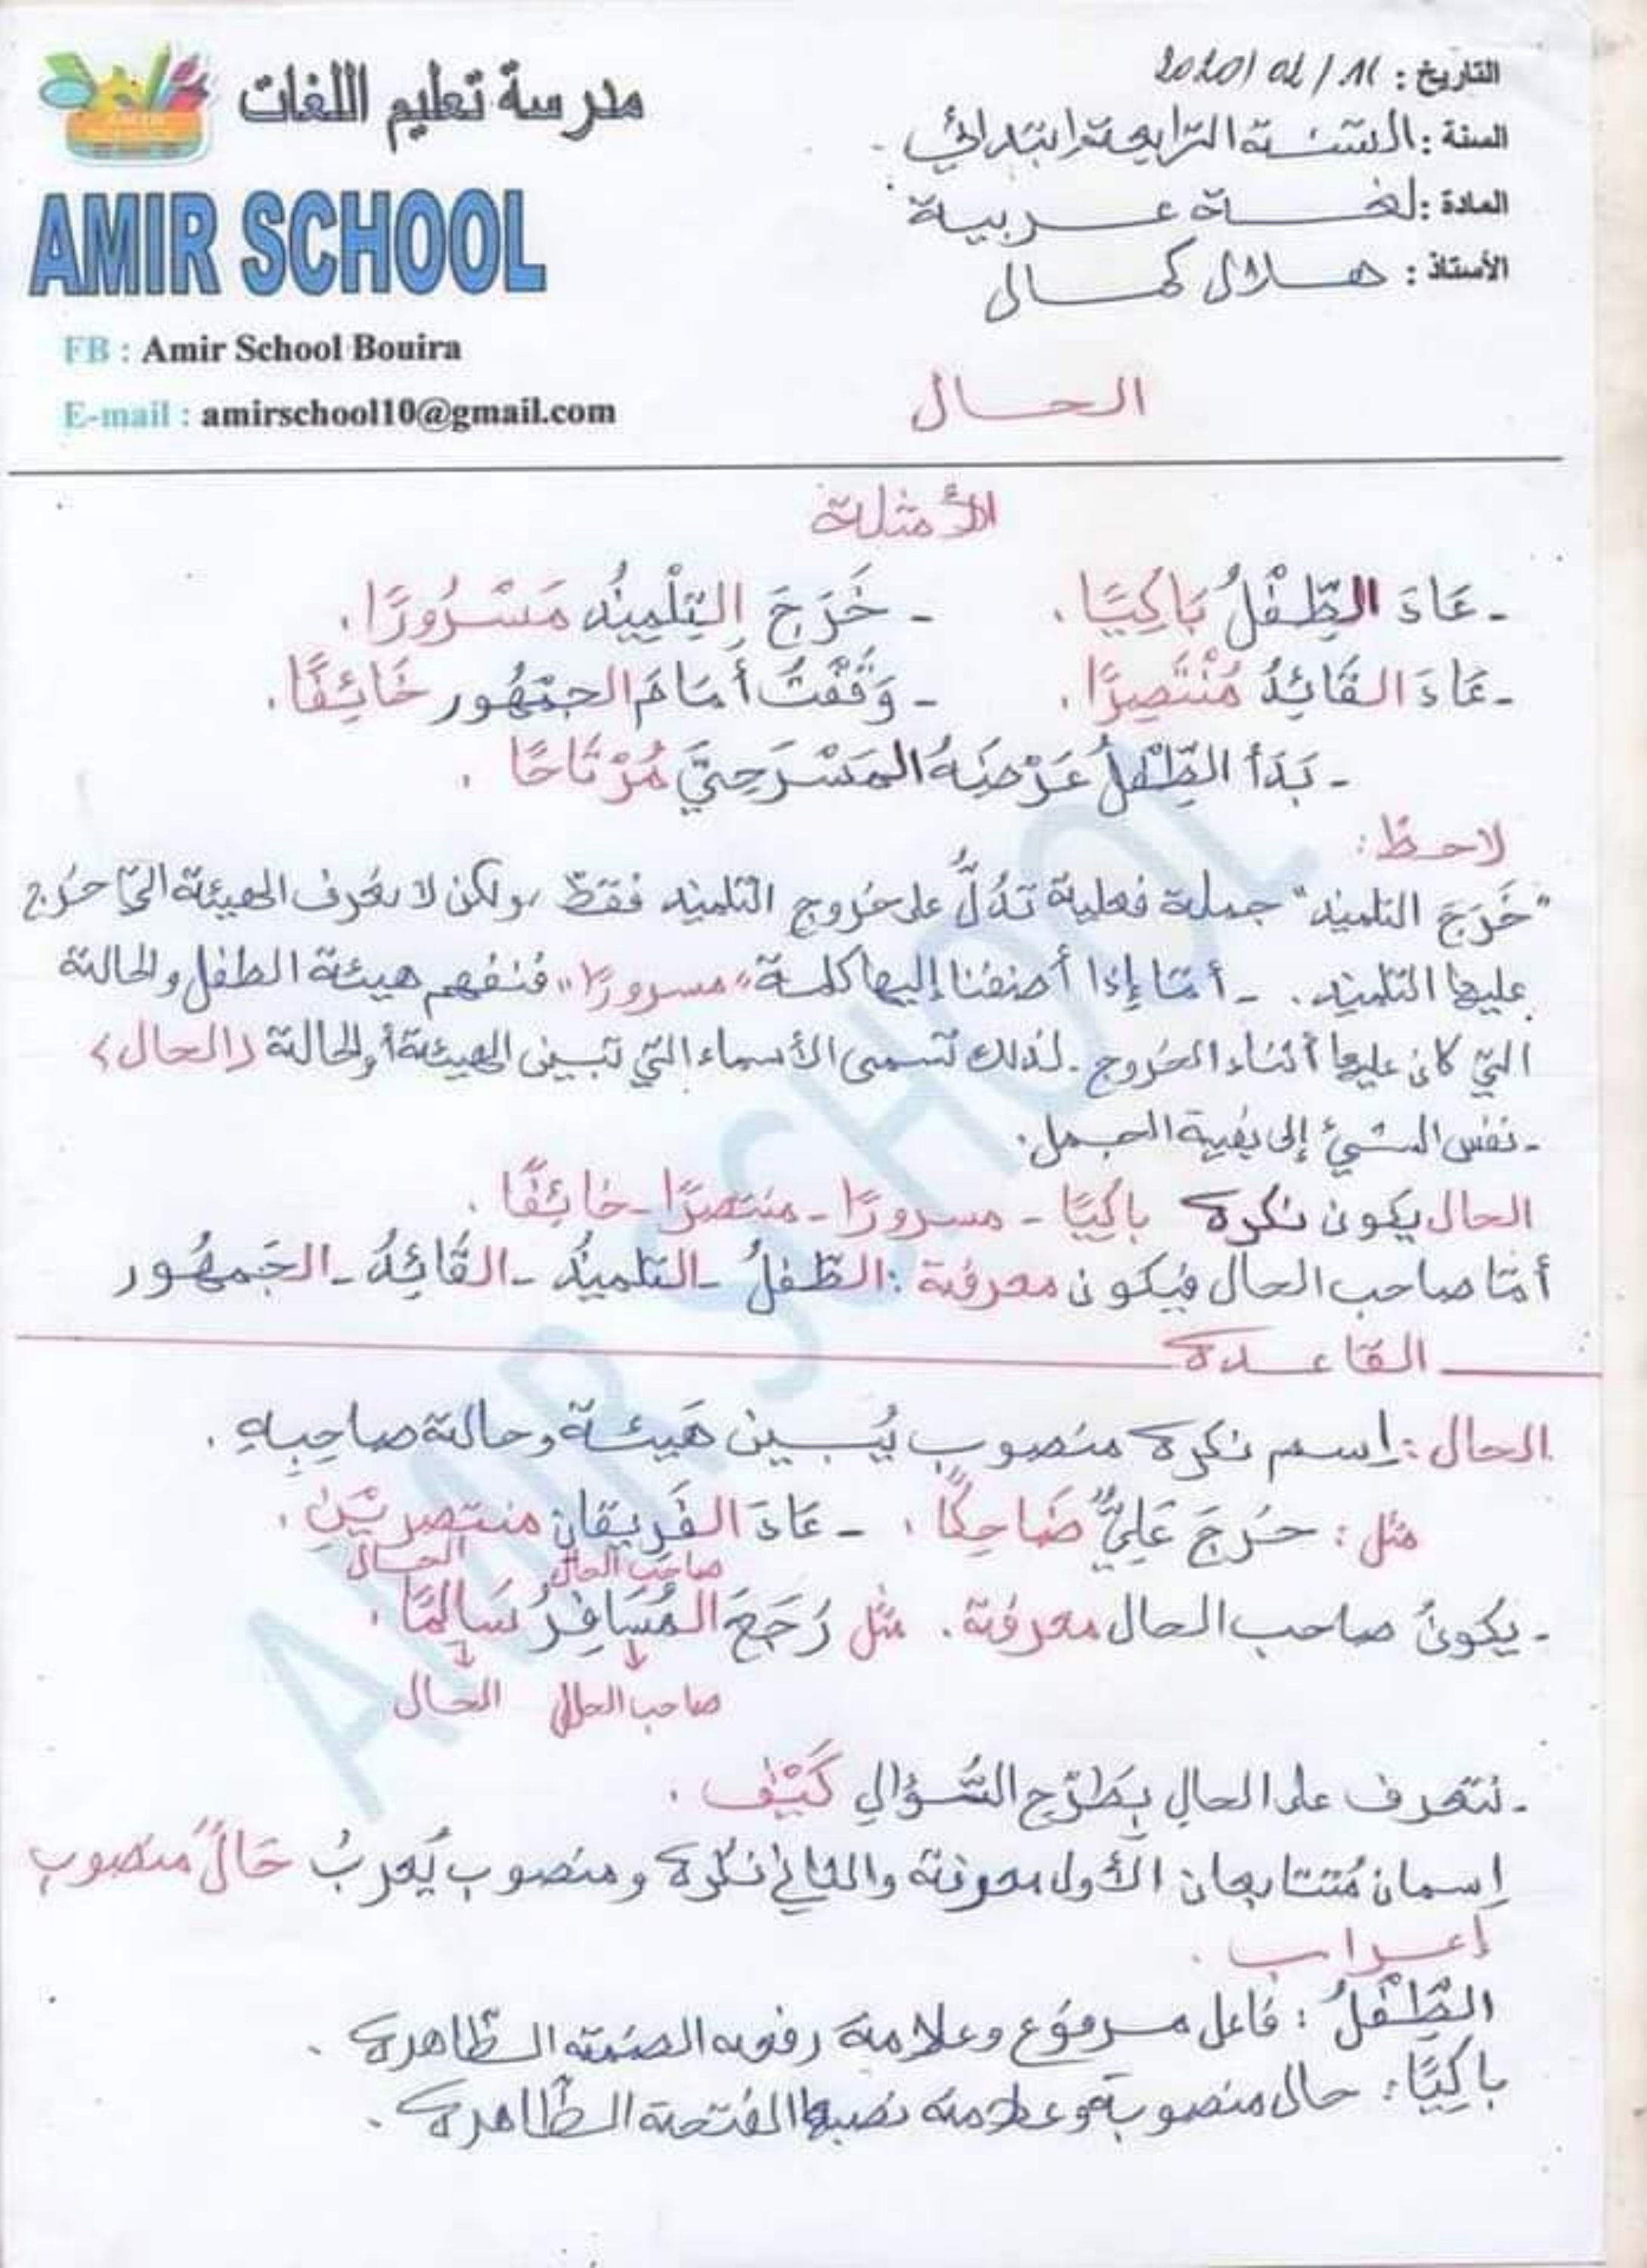 مدرسة تعليم اللغات
AMIR SCHOOL
FB : Amir School Bouira
E-mail : amirschool10@gmail.com
التاريخ :
السنة : السنة الرابعة ابتدائي
المادة : لغة عربية
الأستاذ : هلال كمال
الحال
الأمثلة
- عَادَ الطِّفْلُ بَاكِيًا . - خَرَجَ التِلْمِيذُ مَسْرُورًا .
- عَادَ القَائِدُ مُنْتَصِرًا . - وَقَفْتُ أمَامَ الجمْهُور خَائِفًا .
- بَدَأ الطِّفْلُ عَرْضَهُ المَسْرَحِيَّ مُرْتَاحًا .
لاحظ :
"خَرَجَ التلميذ" جملة فعلية تَدُلُّ على خروج التلميذ فقط ، ولكن لا نعرف الهيئة التي خرج
عليها التلميذ . - أمّا إذا أضفنا إليها كلمة "مسرورًا" فنفهم هيئة الطفل والحالة
التي كان عليها أثناء الخروج . لذلك تسمى الأسماء التي تبين الهيئة أو الحالة (الحال)
- نفس الشيئ إلى بقية الجمل .
الحال يكون نكرة باكيًا - مسرورًا - منتصرًا - خائفًا .
أمّا صاحب الحال فيكون معرفة : الطّفلُ - التلميذُ - القَائِدُ - الجَمهُور
القاعدة
الحال : إسم نكرة منصوب يُبين هَيئة وحالة صاحِبِهِ .
مثل : خرجَ عَلِيٌّ ضَاحِكًا . - عَادَ الفَرِيقَان منتصريْنِ .
صاحب الحال الحال
- يكونُ صاحب الحال معرفة . مثل رَجَعَ المُسَافِرُ سَالِمًا .
صاحب الحال الحال
- نتعرف على الحالِ بِطَرْحِ السُّؤالِ كَيْفَ .
إسمان مُتتابعان الأول معرفة والثاني نكرة ومنصوب يُعربُ حَالٌ منصوب
إعراب .
الطِّفْلُ : فاعل مرفوع وعلامة رفعه الضمة الظّاهرة .
باكِيًا : حال منصوبة وعلامة نصبها الفتحة الظّاهرة .
AMIR SCHOOL